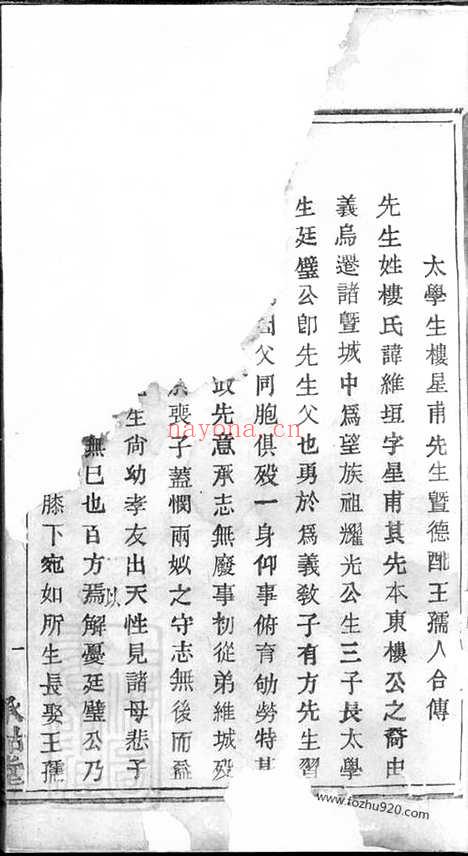 太學生樓星甫先生暨德配王孺人合傳
先生姓樓氏諱維垣字星甫其先本東樓公之裔由
義烏遷諸暨城中為望族祖耀光公生三子長太學
生廷璧公卽先生父也勇於為義敎子有方先生習
父同胞俱殁一身仰事俯育劬勞特甚
先意承志無廢事初從弟維城殁
喪子蓋憫兩姒之守志無後而爲
生尙幼孝友出天性見諸母悲子
無已也百方以爲解憂廷璧公乃
膝下宛如所生長娶王孺
一
nayona.cn
www.fozhu920.com